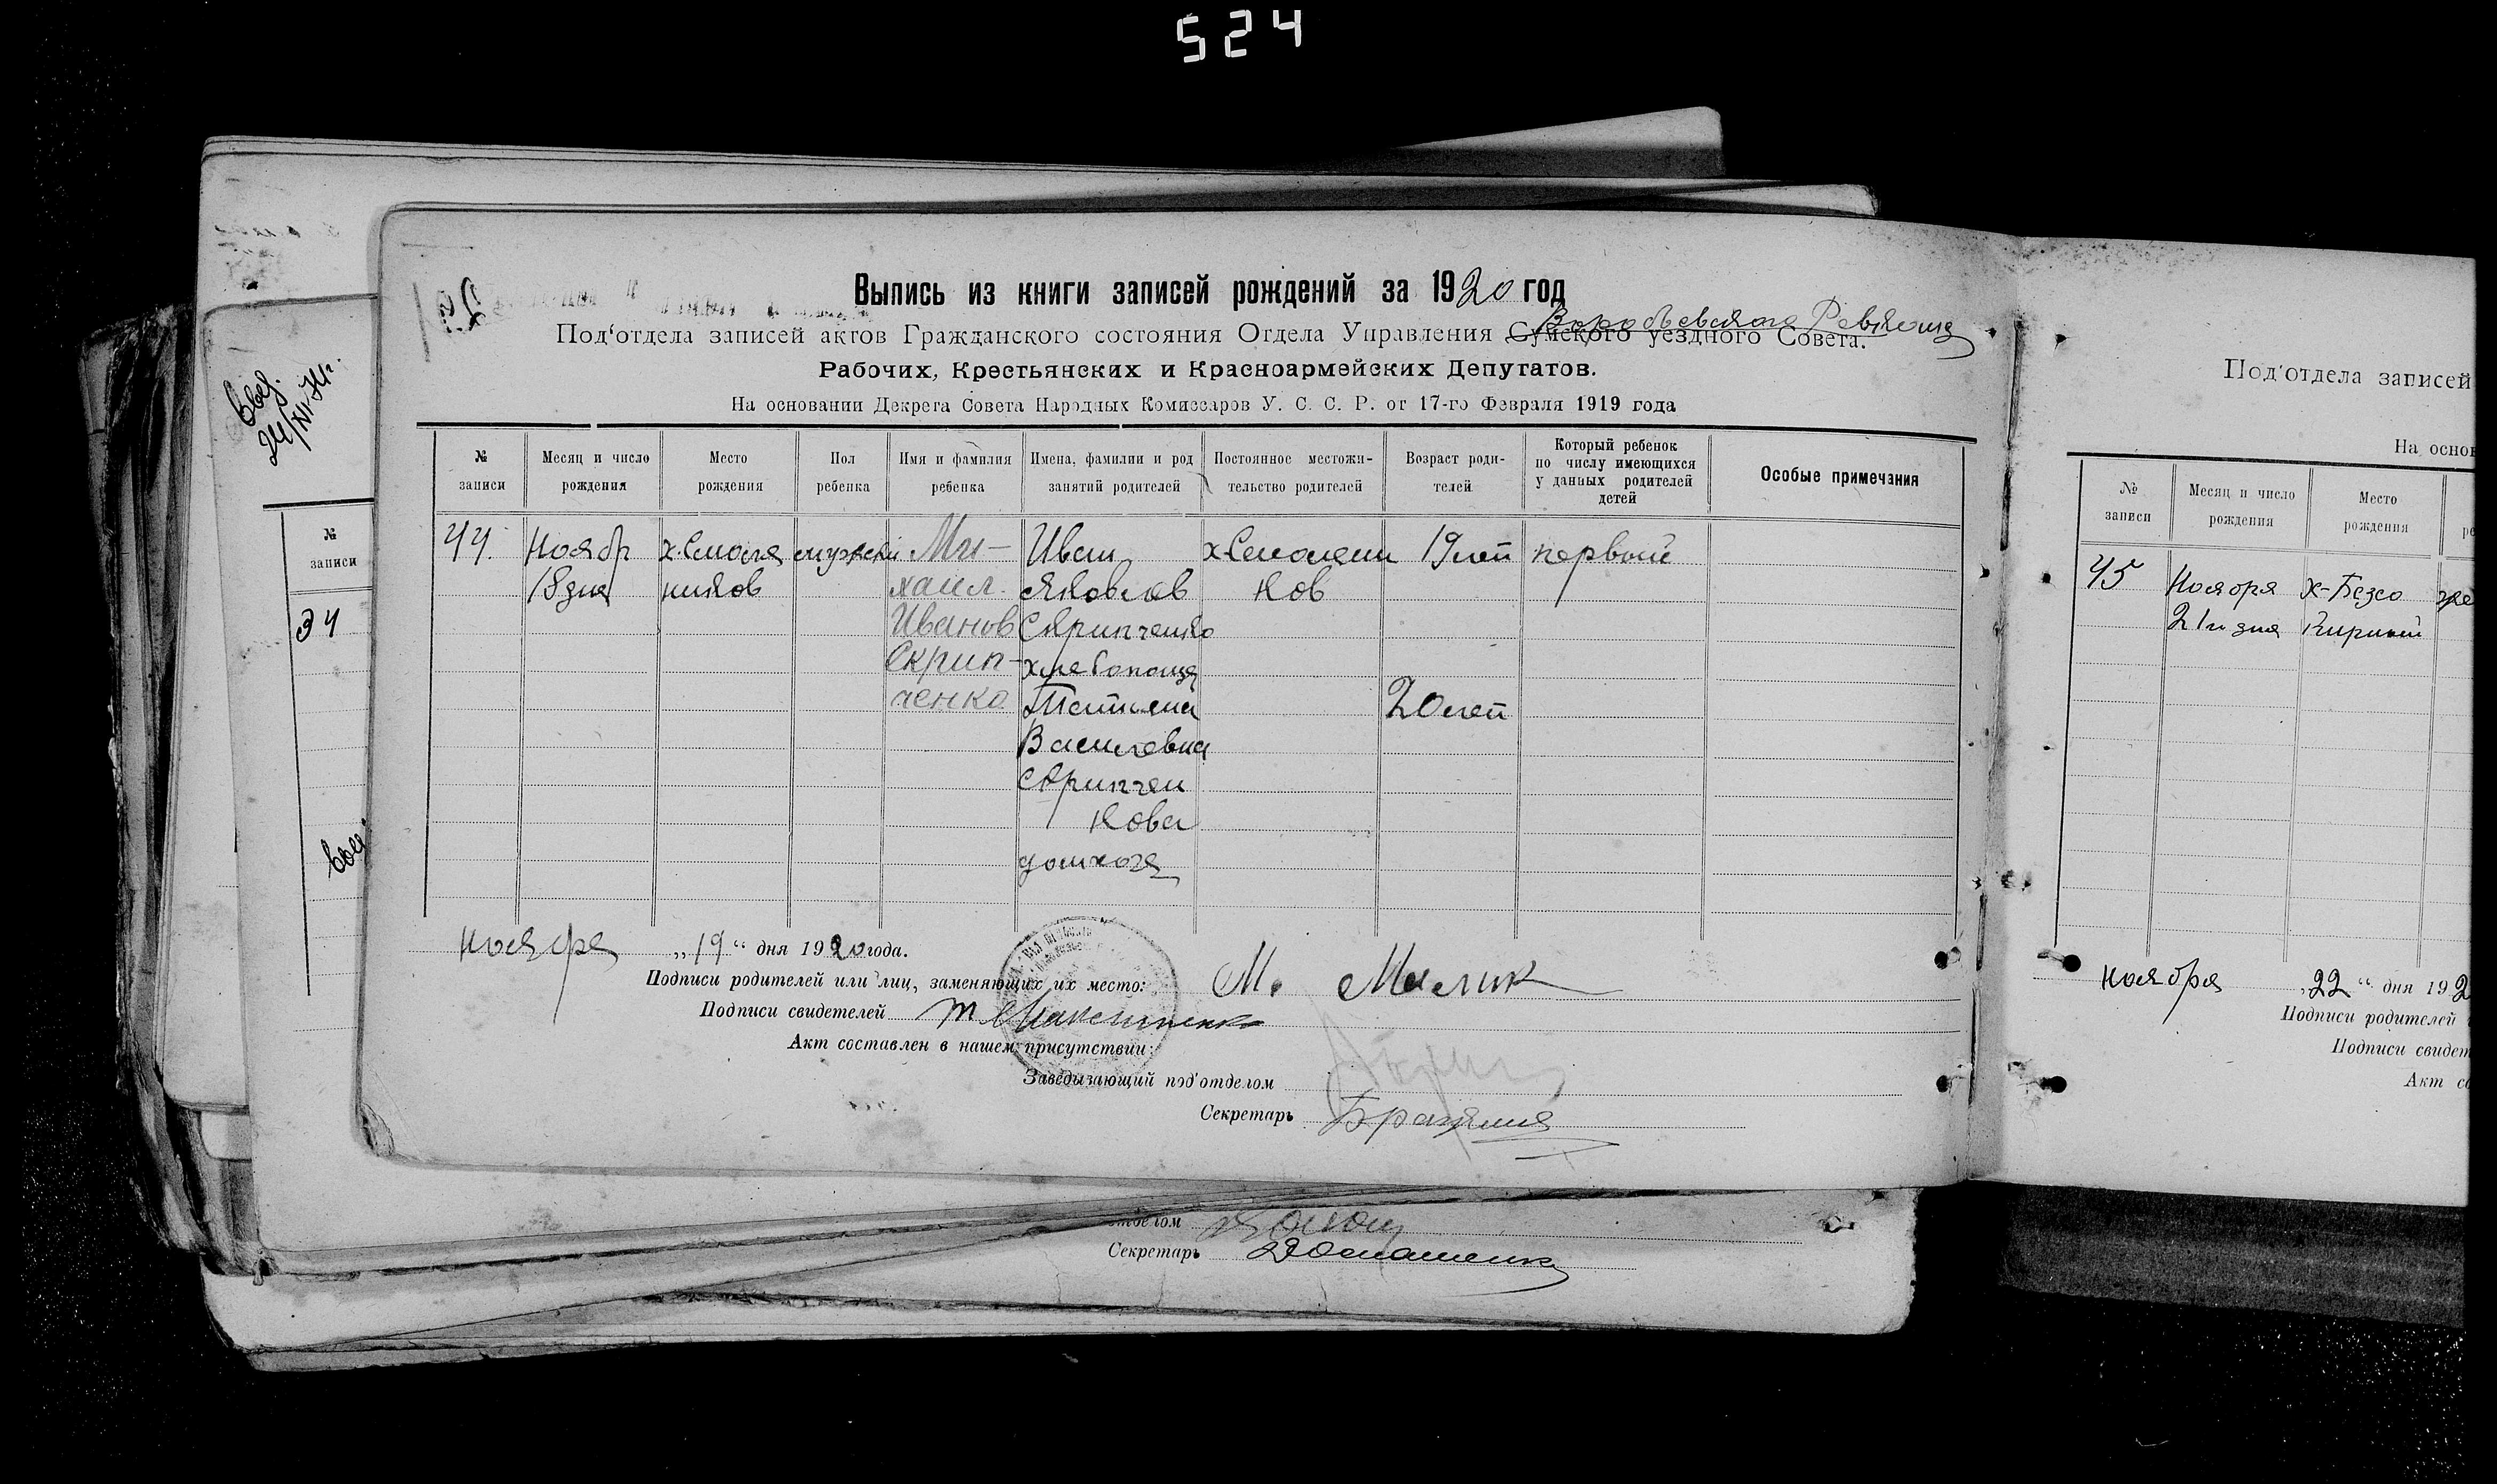 524
Выпись из книги записей рождений за 1920 год
Воробьевского Ревкома
Под‘отдела записей актов Гражданского состояния Отдела Управления Сумского уездного Совета.
Рабочих, Крестьянских и Красноармейских Депутатов.
На основании Декрета Совета Народных Комиссаров У. С. С. Р. от 17-го Февраля 1919 года
№ записи
Месяц и число рождения
Место рождения
Пол ребенка
Имя и фамилия ребенка
Имена, фамилии и род занятий родителей
Постоянное местожи-тельство родителей
Возраст роди-телей
Который ребенок по числу имеющихся у данных родителей детей
Особые примечания
44.
Ноябр
18 дня
х. Смоля
ников
мужски
Ми-
хаил.
Иванов
Скрип-
ченко
Иван
Яковлев
Скрипченко
хлебопащ
Татьяна
Василевна
Скрипчен
кова
домхоз
х Смолян
ков
19 лет
20 лет
первый
ноября „19“ дня 1920 года.
Подписи родителей или лиц, заменяющих их место: М. Малик
Подписи свидетелей
Акт составлен в нашем присутствии:
Заведызающий под‘отделом
Секретарь
отделом
Секретарь Домашенко
№
записи
34
Под‘отдела записей
На основ
№ записи
Месяц и число рождения
Место рождения
45
Ноября
21 го дня
х-Безо
Кирный
ноября „22“ дня 192
Подписи родителей
Подписи свидет
Акт со